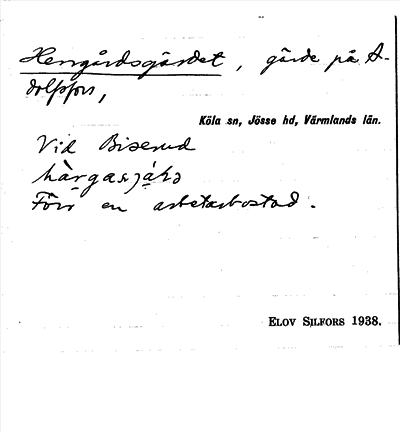 Herrgårdsgärdet, gärde på A-
dolfsfors,
Köla sn, Jösse hd, Värmlands län.
Vid Biserud
Förr en arbetarbostad.
ELOV SILFORS 1938.